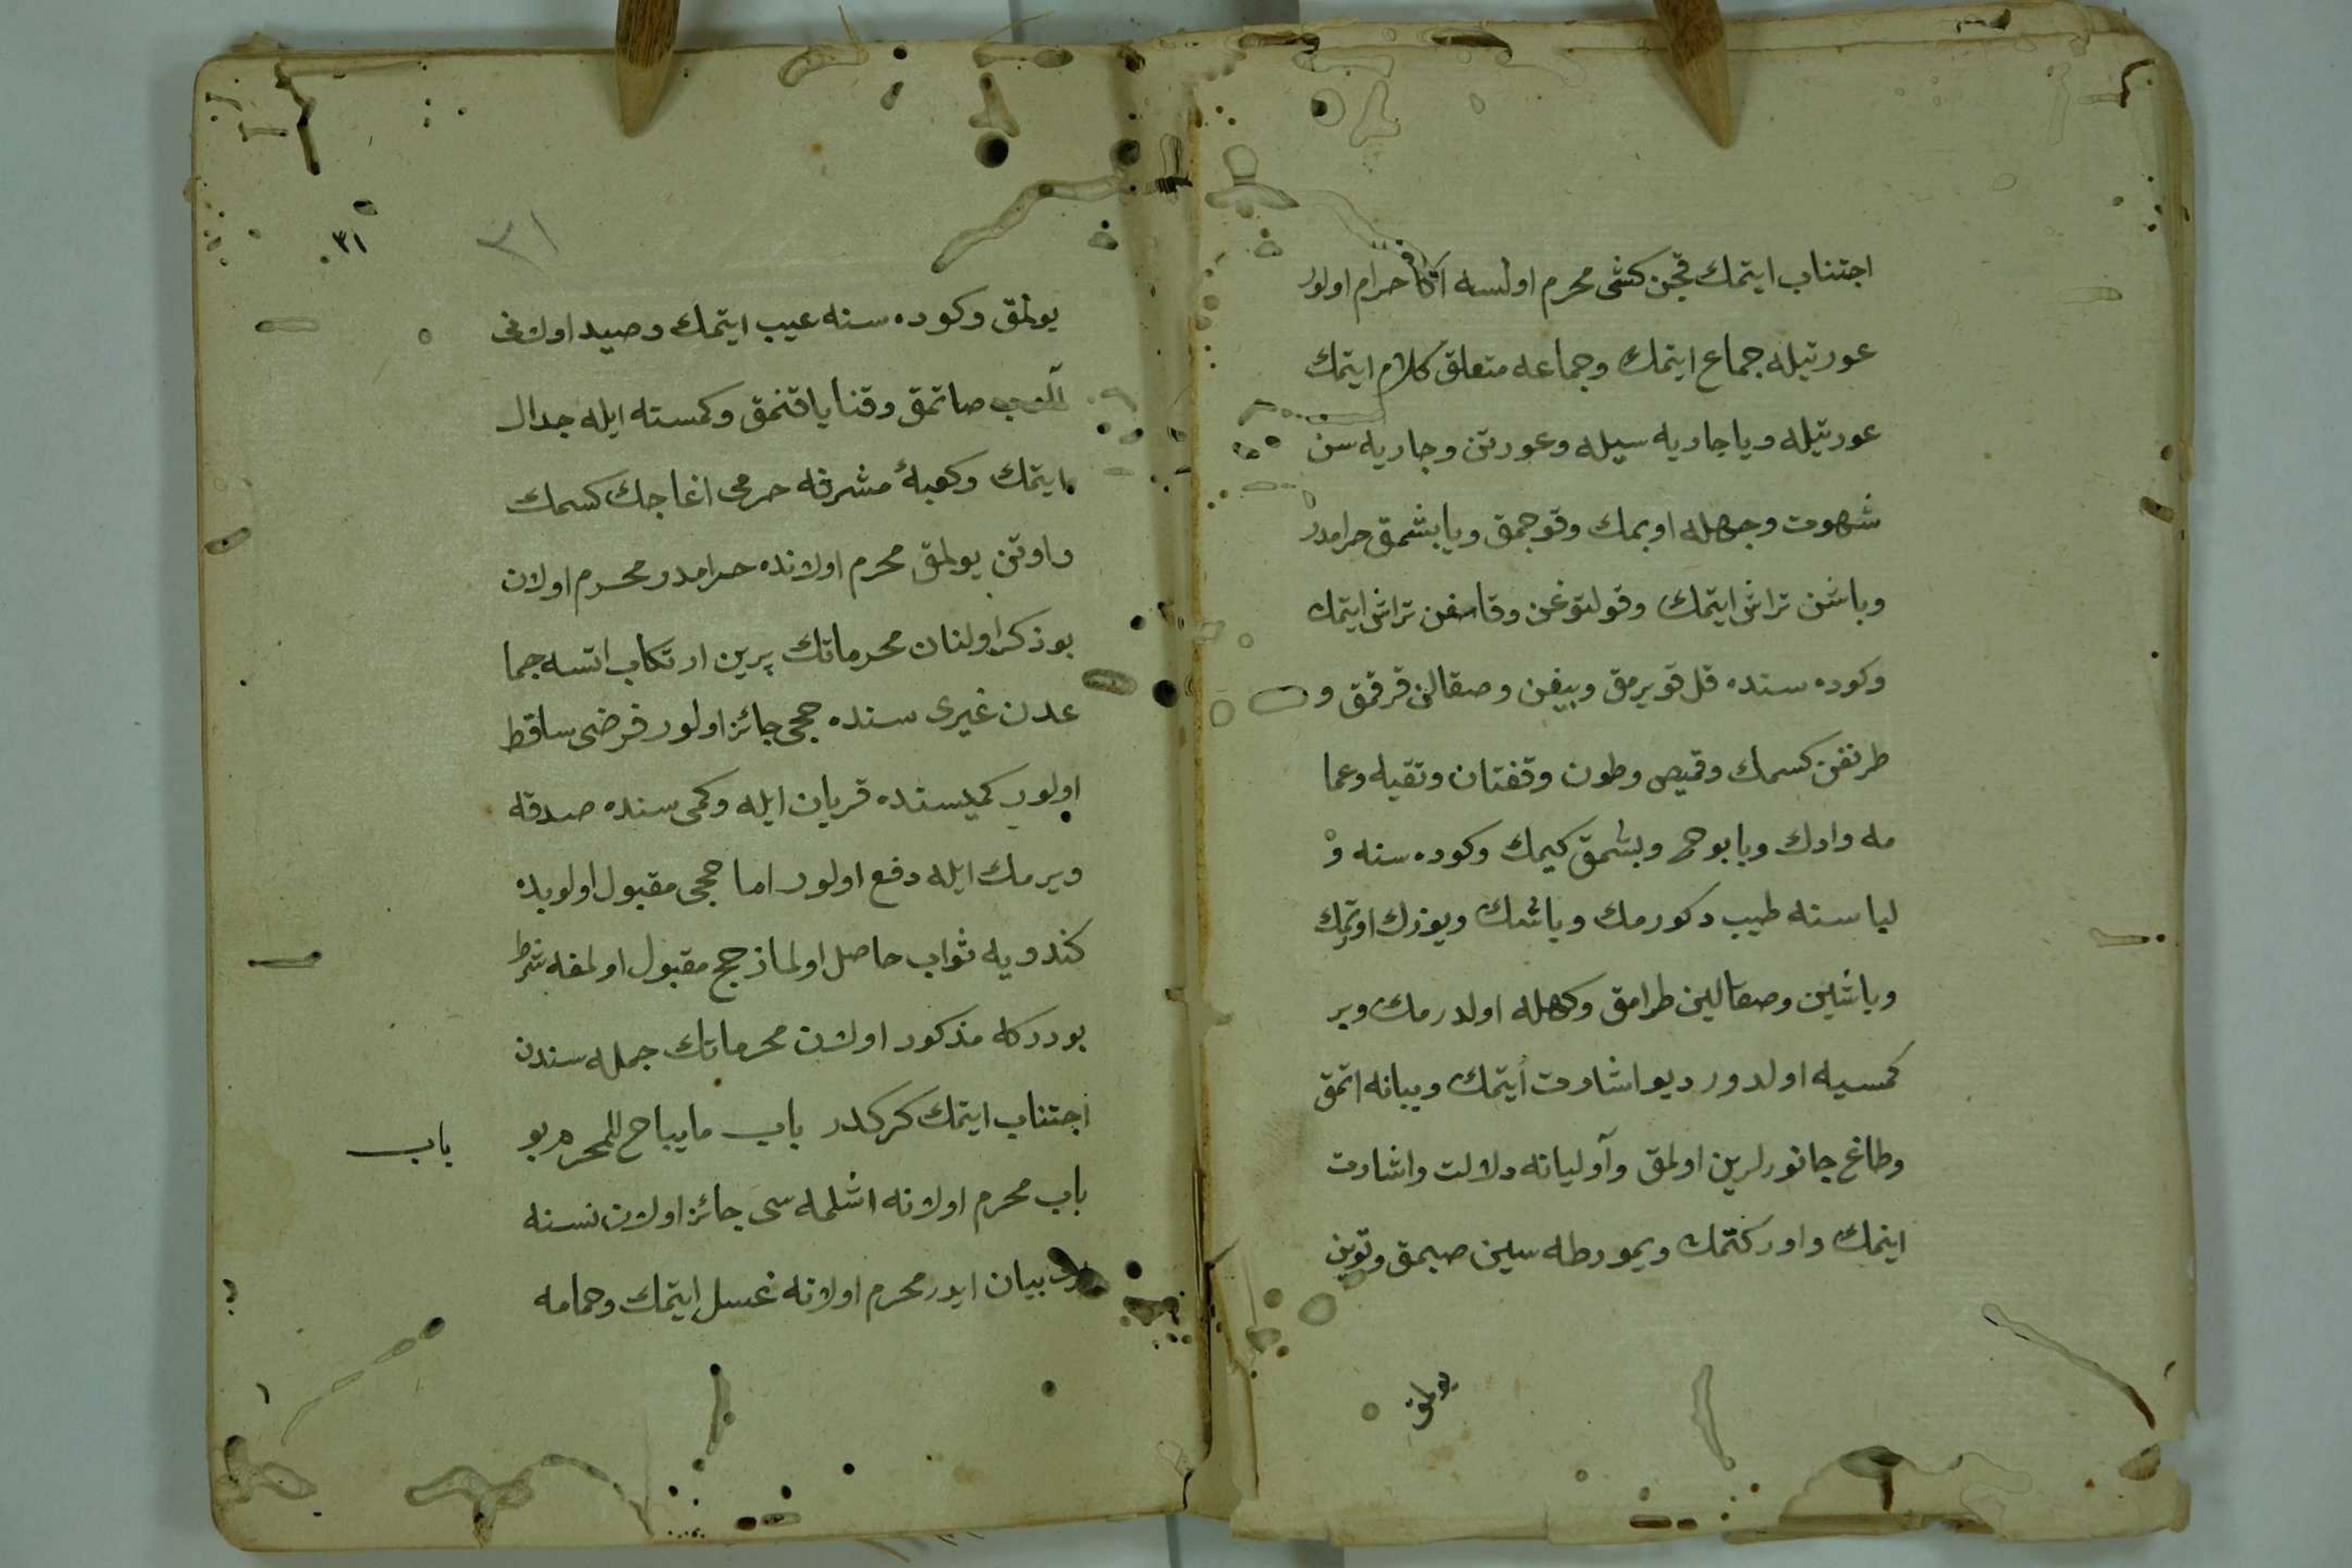 اجتناب ايتمك قچن كشى محرم اولسه اڭا حرام اولور
عورتيله جماع ايتمك وجماعه متعلق كلام ايتمك
عورتيله ويا جاريه سيله وعورتن وجاريه سن
شهوت وجهله اوپمك وقوجمق ويابشمق حرامدر
وباشن تراش ايتمك وقولتوغن وقاسغن تراش ايتمك
وكوده سنده قل قويرمق وبيغن وصقالن قرقمق و
طرنغن كسمك وقميص وطون وقفتان وتقيه وعما
مه وادك وبابوج وبشمق كيمك وكوده سنه و
لباسنه طيب دكورمك وباشك ويوزك اورتمك
وباشين وصقالين طرامق وكهله اولدرمك وبر
كمسيه اولدور ديو اشارت ايتمك ويبانه اتمق
وطاغ جانورلرين اولمق وآوليانه دلالت واشارت
ايتمك واوركتمك ويمورطه سين صيمق وتوين
يولمق
٣١
٣١
يولمق وكوده سنه عيب ايتمك وصيد اولانى
آلوب صاتمق وقنا ياقنمق وكمسته ايله جدال
ايتمك وكعبۀ مشرفه حرمى اغاجك كسمك
واوتن يولمق محرم اولانده حرامدر محرم اولان
بو ذكر اولنان محرماتك برين ارتكاب اتسه جما
عدن غيرى سنده حجى جائز اولور فرضى ساقط
اولور كميسنده قربان ايله وكمى سنده صدقه
ويرمك ايله دفع اولور اما حجى مقبول اولوبده
كندويه ثواب حاصل اولماز حج مقبول اولمغه شرط
بودركه مذكور اولان محرماتك جمله سندن
اجتناب ايتمك كركدر باب ما يباح للمحرم بو
باب
باب محرم اولانه اشلمه سى جائز اولان نسنه
بيان ايدر محرم اولانه غسل ايتمك وحمامه